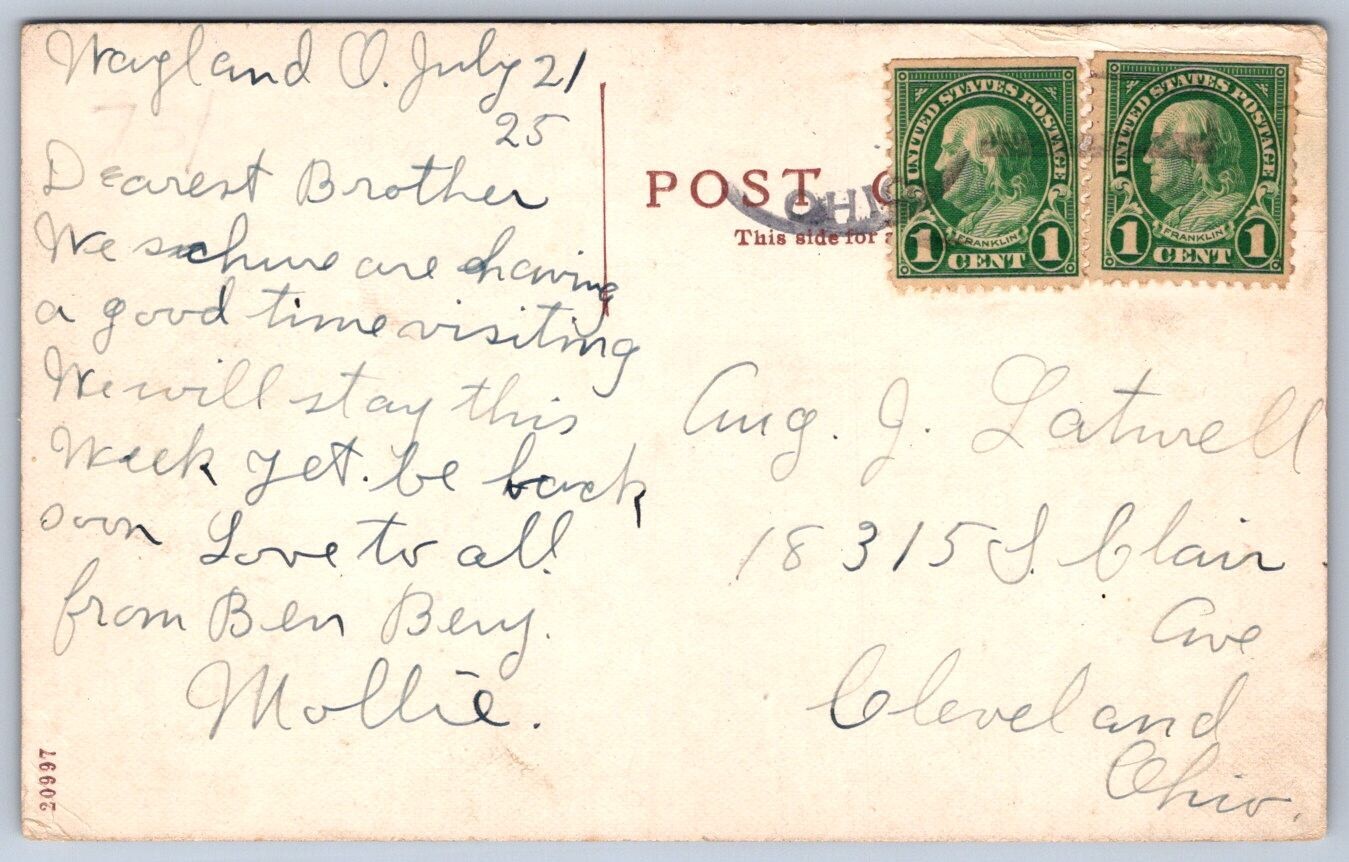 Wayland O. July 21
25
Dearest Brother
We schure are having
a good time visiting
We will stay this
Week yet. be back
soon Love to all.
from Ben Benj.
Mollie.
20997
POST C
This side for a
OHIO
UNITED STATES POSTAGE
FRANKLIN
1 CENT 1
UNITED STATES POSTAGE
FRANKLIN
1 CENT 1
Aug. J. Latwell
18315 S. Clair
Ave
Cleveland
Ohio.